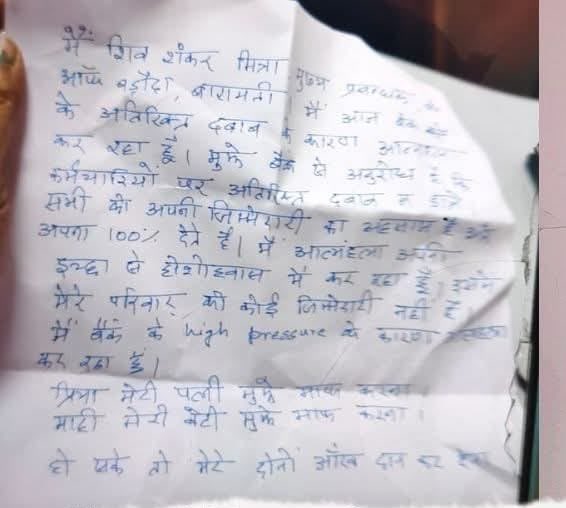 मैं शिव शंकर मित्रा मुख्य प्रबन्धक, बैंक
ऑफ बड़ौदा, बारामती में आज बैंक
के अतिरिक्त दबाव के कारण आत्महत्या
कर रहा हूँ। मुझे बैंक से अनुरोध है कि
कर्मचारियों पर अतिरिक्त दबाव न डाले
सभी को अपनी जिम्मेदारी का अहसास है और
अपना 100% देते हैं। मैं आत्महत्या अपनी
इच्छा से होशोहवास में कर रहा हूँ। इसमें
मेरे परिवार की कोई जिम्मेदारी नहीं है।
मैं बैंक के high pressure के कारण आत्महत्या
कर रहा हूँ।
प्रिया मेरी पत्नी मुझे माफ करना
माही मेरी बेटी मुझे माफ करना।
हो सके तो मेरे दोनों आँख दान कर देना